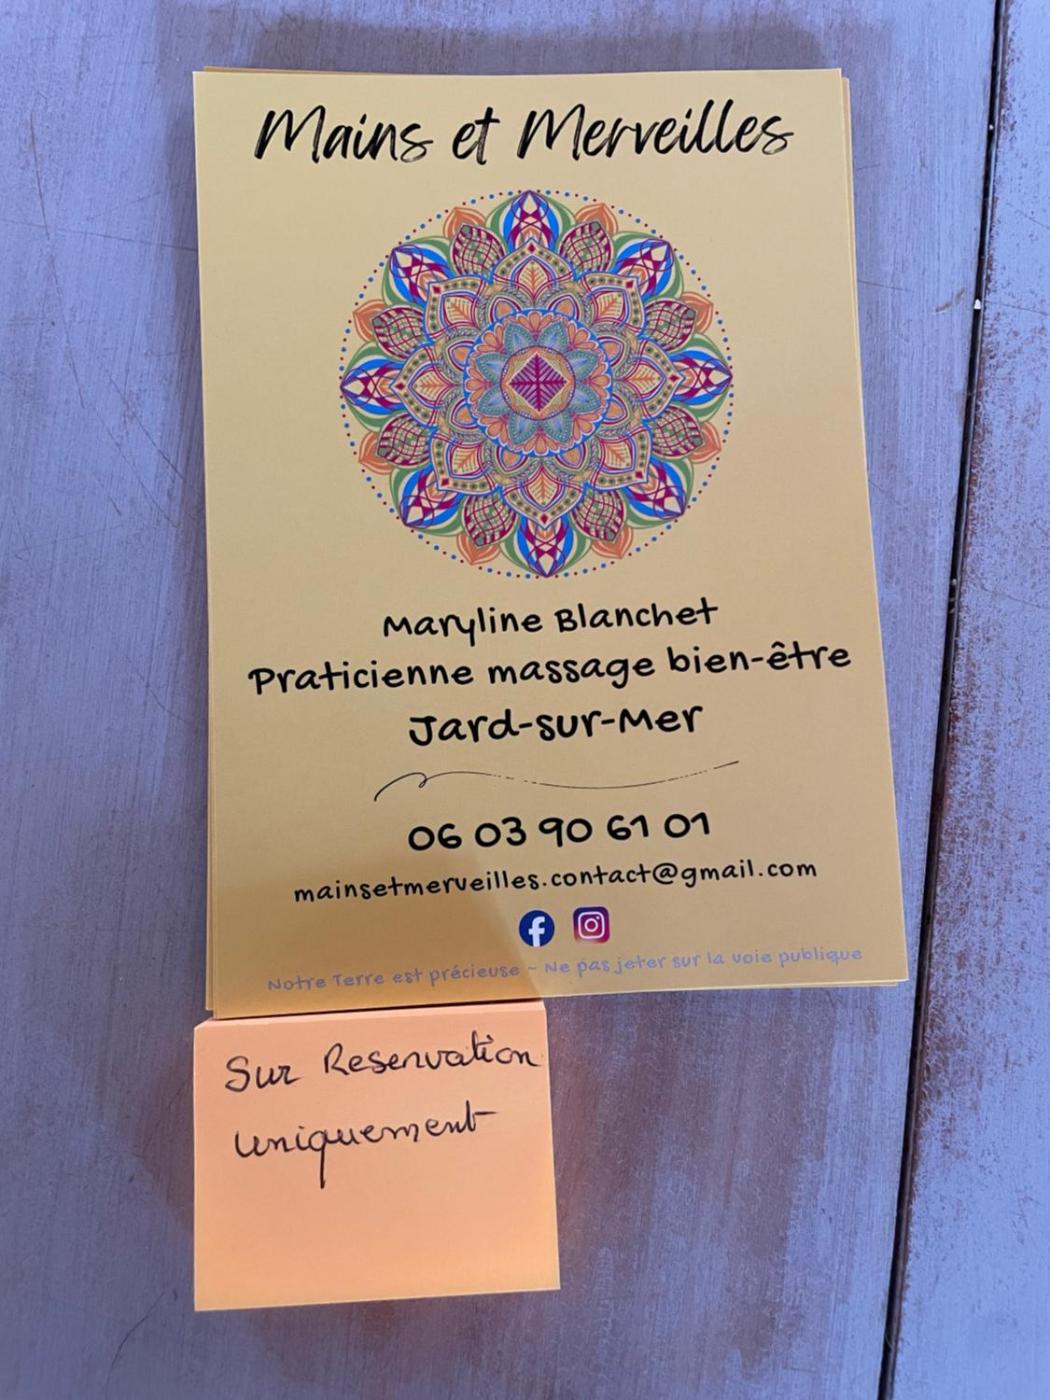 Mains et Merveilles
Maryline Blanchet
Praticienne massage bien-être
Jard-sur-Mer
06 03 90 61 01
mainsetmerveilles.contact@gmail.com
Notre Terre est précieuse ~ Ne pas jeter sur la voie publique
Sur Reservation
uniquement